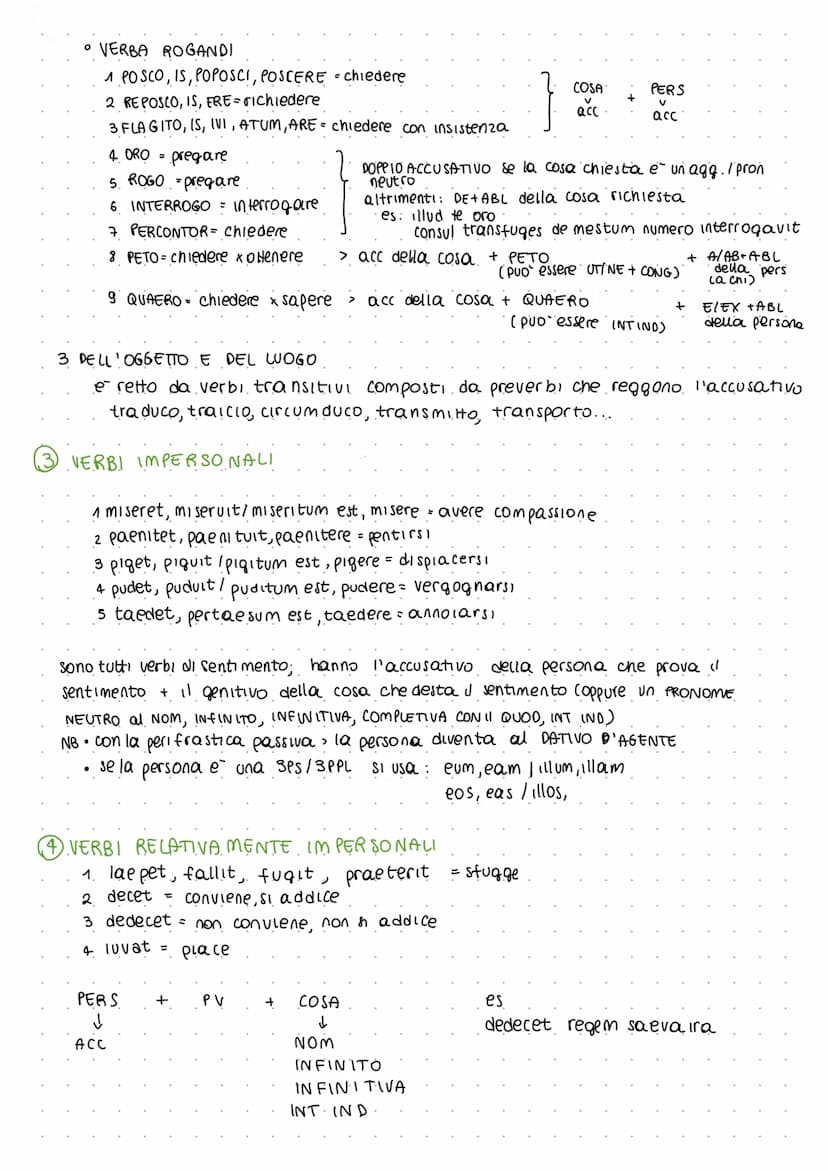 ° VERBA ROGANDI
1 POSCO, IS, POPOSCI, POSCERE = chiedere
2 REPOSCO, IS, ERE = richiedere
3 FLAGITO, IS, IVI, ATUM, ARE = chiedere con insistenza
COSA + PERS
acc acc
4 ORO = pregare
5 ROGO = pregare
6 INTERROGO = interrogare
7 PERCONTOR = chiedere
DOPPIO ACCUSATIVO se la cosa chiesta e- un agg. / pron
neutro
altrimenti: DE + ABL della cosa richiesta
es: illud te oro
consul transfuges de mestum numero interrogavit
8 PETO = chiedere x ottenere > acc della cosa + PETO + A/AB + ABL
(PUO' essere UT/NE + CONG) della pers
(a chi)
9 QUAERO = chiedere x sapere > acc della cosa + QUAERO + E/EX + ABL
(PUO' essere INT IND) della persona
3 DELL'OGGETTO E DEL LUOGO
e- retto da verbi transitivi composti da preverbi che reggono l'accusativo
traduco, traicio, circumduco, transmitto, transporto...
3 VERBI IMPERSONALI
1 miseret, miseruit / miseritum est, misere = avere compassione
2 paenitet, paenituit, paenitere = pentirsi
3 piget, piguit / pigitum est, pigere = dispiacersi
4 pudet, puduit / puditum est, pudere = vergognarsi
5 taedet, pertaesum est, taedere = annoiarsi
sono tutti verbi di sentimento; hanno l'accusativo della persona che prova il
sentimento + il genitivo della cosa che desta il sentimento (oppure un PRONOME
NEUTRO al NOM, INFINITO, INFINITIVA, COMPLETIVA CON il QUOD, INT IND)
NB • con la perifrastica passiva > la persona diventa al DATIVO D'AGENTE
• se la persona e- una 3PS/3PPL si usa: eum, eam / illum, illam
eos, eas / illos,
4 VERBI RELATIVAMENTE IMPERSONALI
1. laepet, fallit, fugit, praeterit = sfugge
2 decet = conviene, si addice
3 dedecet = non conviene, non si addice
4 iuvat = piace
PERS + PV + COSA
ACC NOM
INFINITO
INFINITIVA
INT IND
es
dedecet regem saeva ira